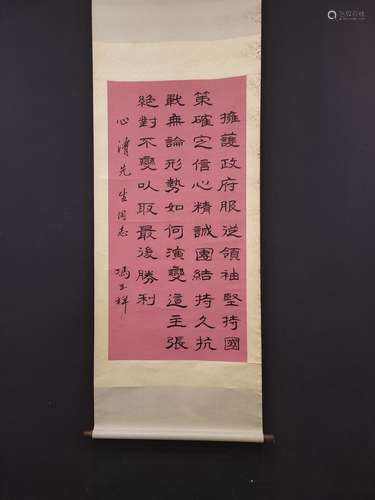 擁護政府服從領袖堅持國
策確定信心精誠團結持久抗
戰無論形勢如何演變這主張
絕對不變以取最後勝利
心 先生同志 馮玉祥